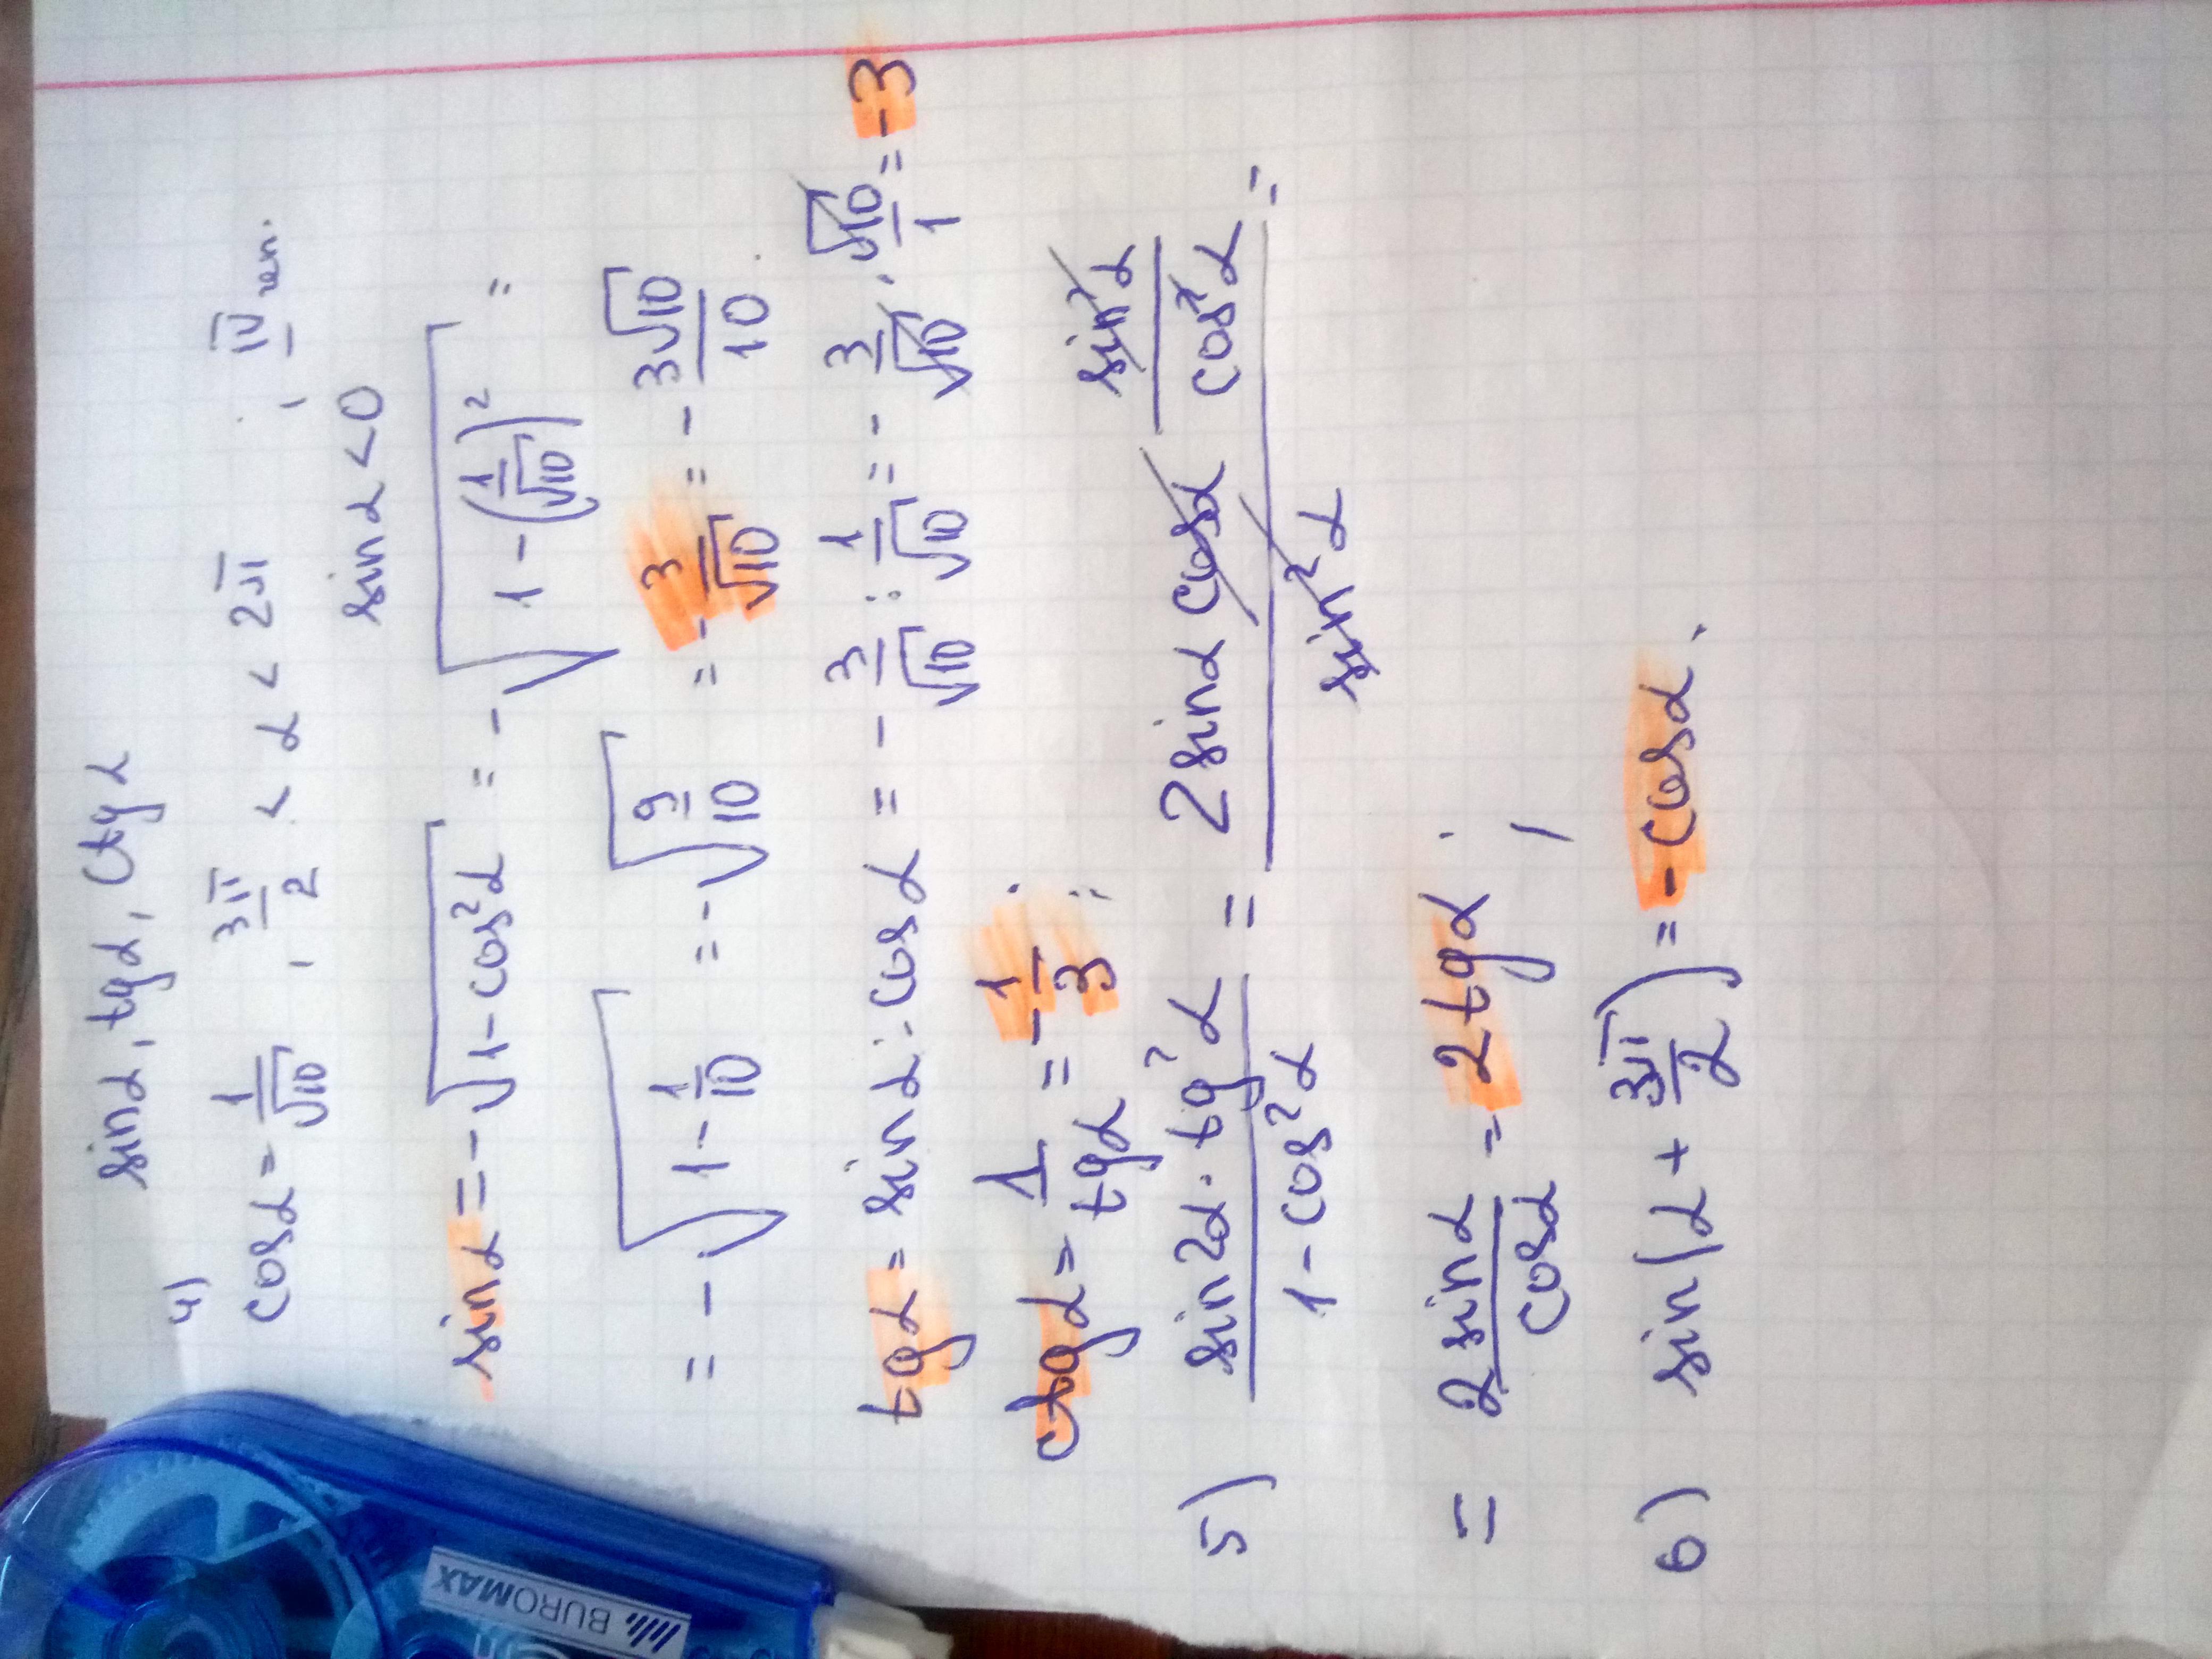 sinα, tgα, ctgα
4)
cosα = 1/√10, 3π/2 < α < 2π; IV
sinα < 0
sinα = -√(1-cos²α) = -√(1-(1/√10)²) =
= -√(1-1/10) = -√(9/10) = -3/√10 = -3√10/10.
tgα = sinα : cosα = -3/√10 : 1/√10 = -3/√10 · √10/1 = -3
ctgα = 1/tgα = -1/3;
5) (sin2α · tg²α)/(1-cos²α) = (2sinα cosα · sin²α/cos²α)/(sin²α) =
= 2sinα/cosα = 2tgα;
6) sin(α + 3π/2) = -cosα.
BUROMAX